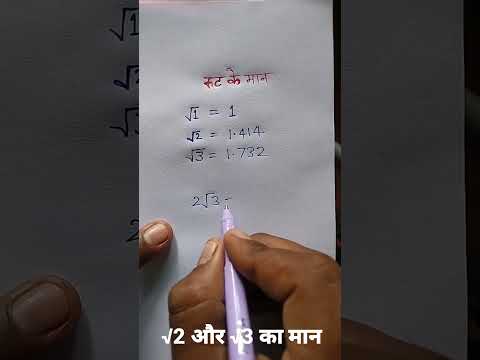 रूट के मान
√1 = 1
√2 = 1.414
√3 = 1.732
2√3 =
√2 और √3 का मान